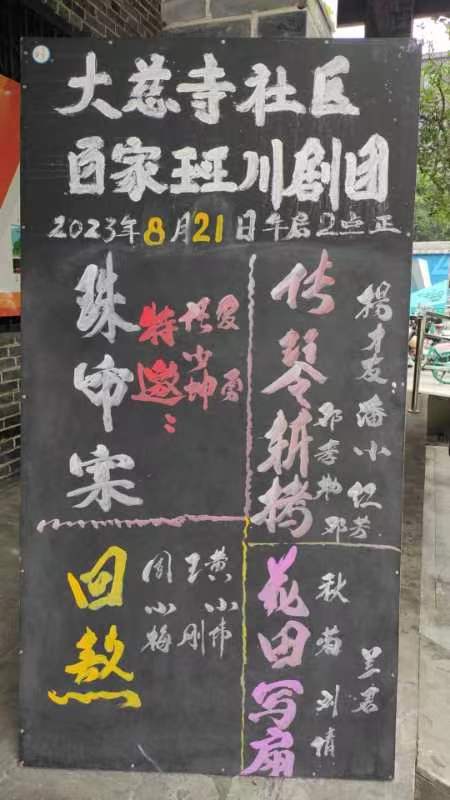 大慈寺社区
百家班川剧团
2023年8月21日午后2点正
传琴斩拷
杨才友
潘小仁
邓芳
珠帘寨
特邀:
小坤
花田写扇
秋菊
兰君
刘倩
回熬
黄小伟
王刚
周小梅